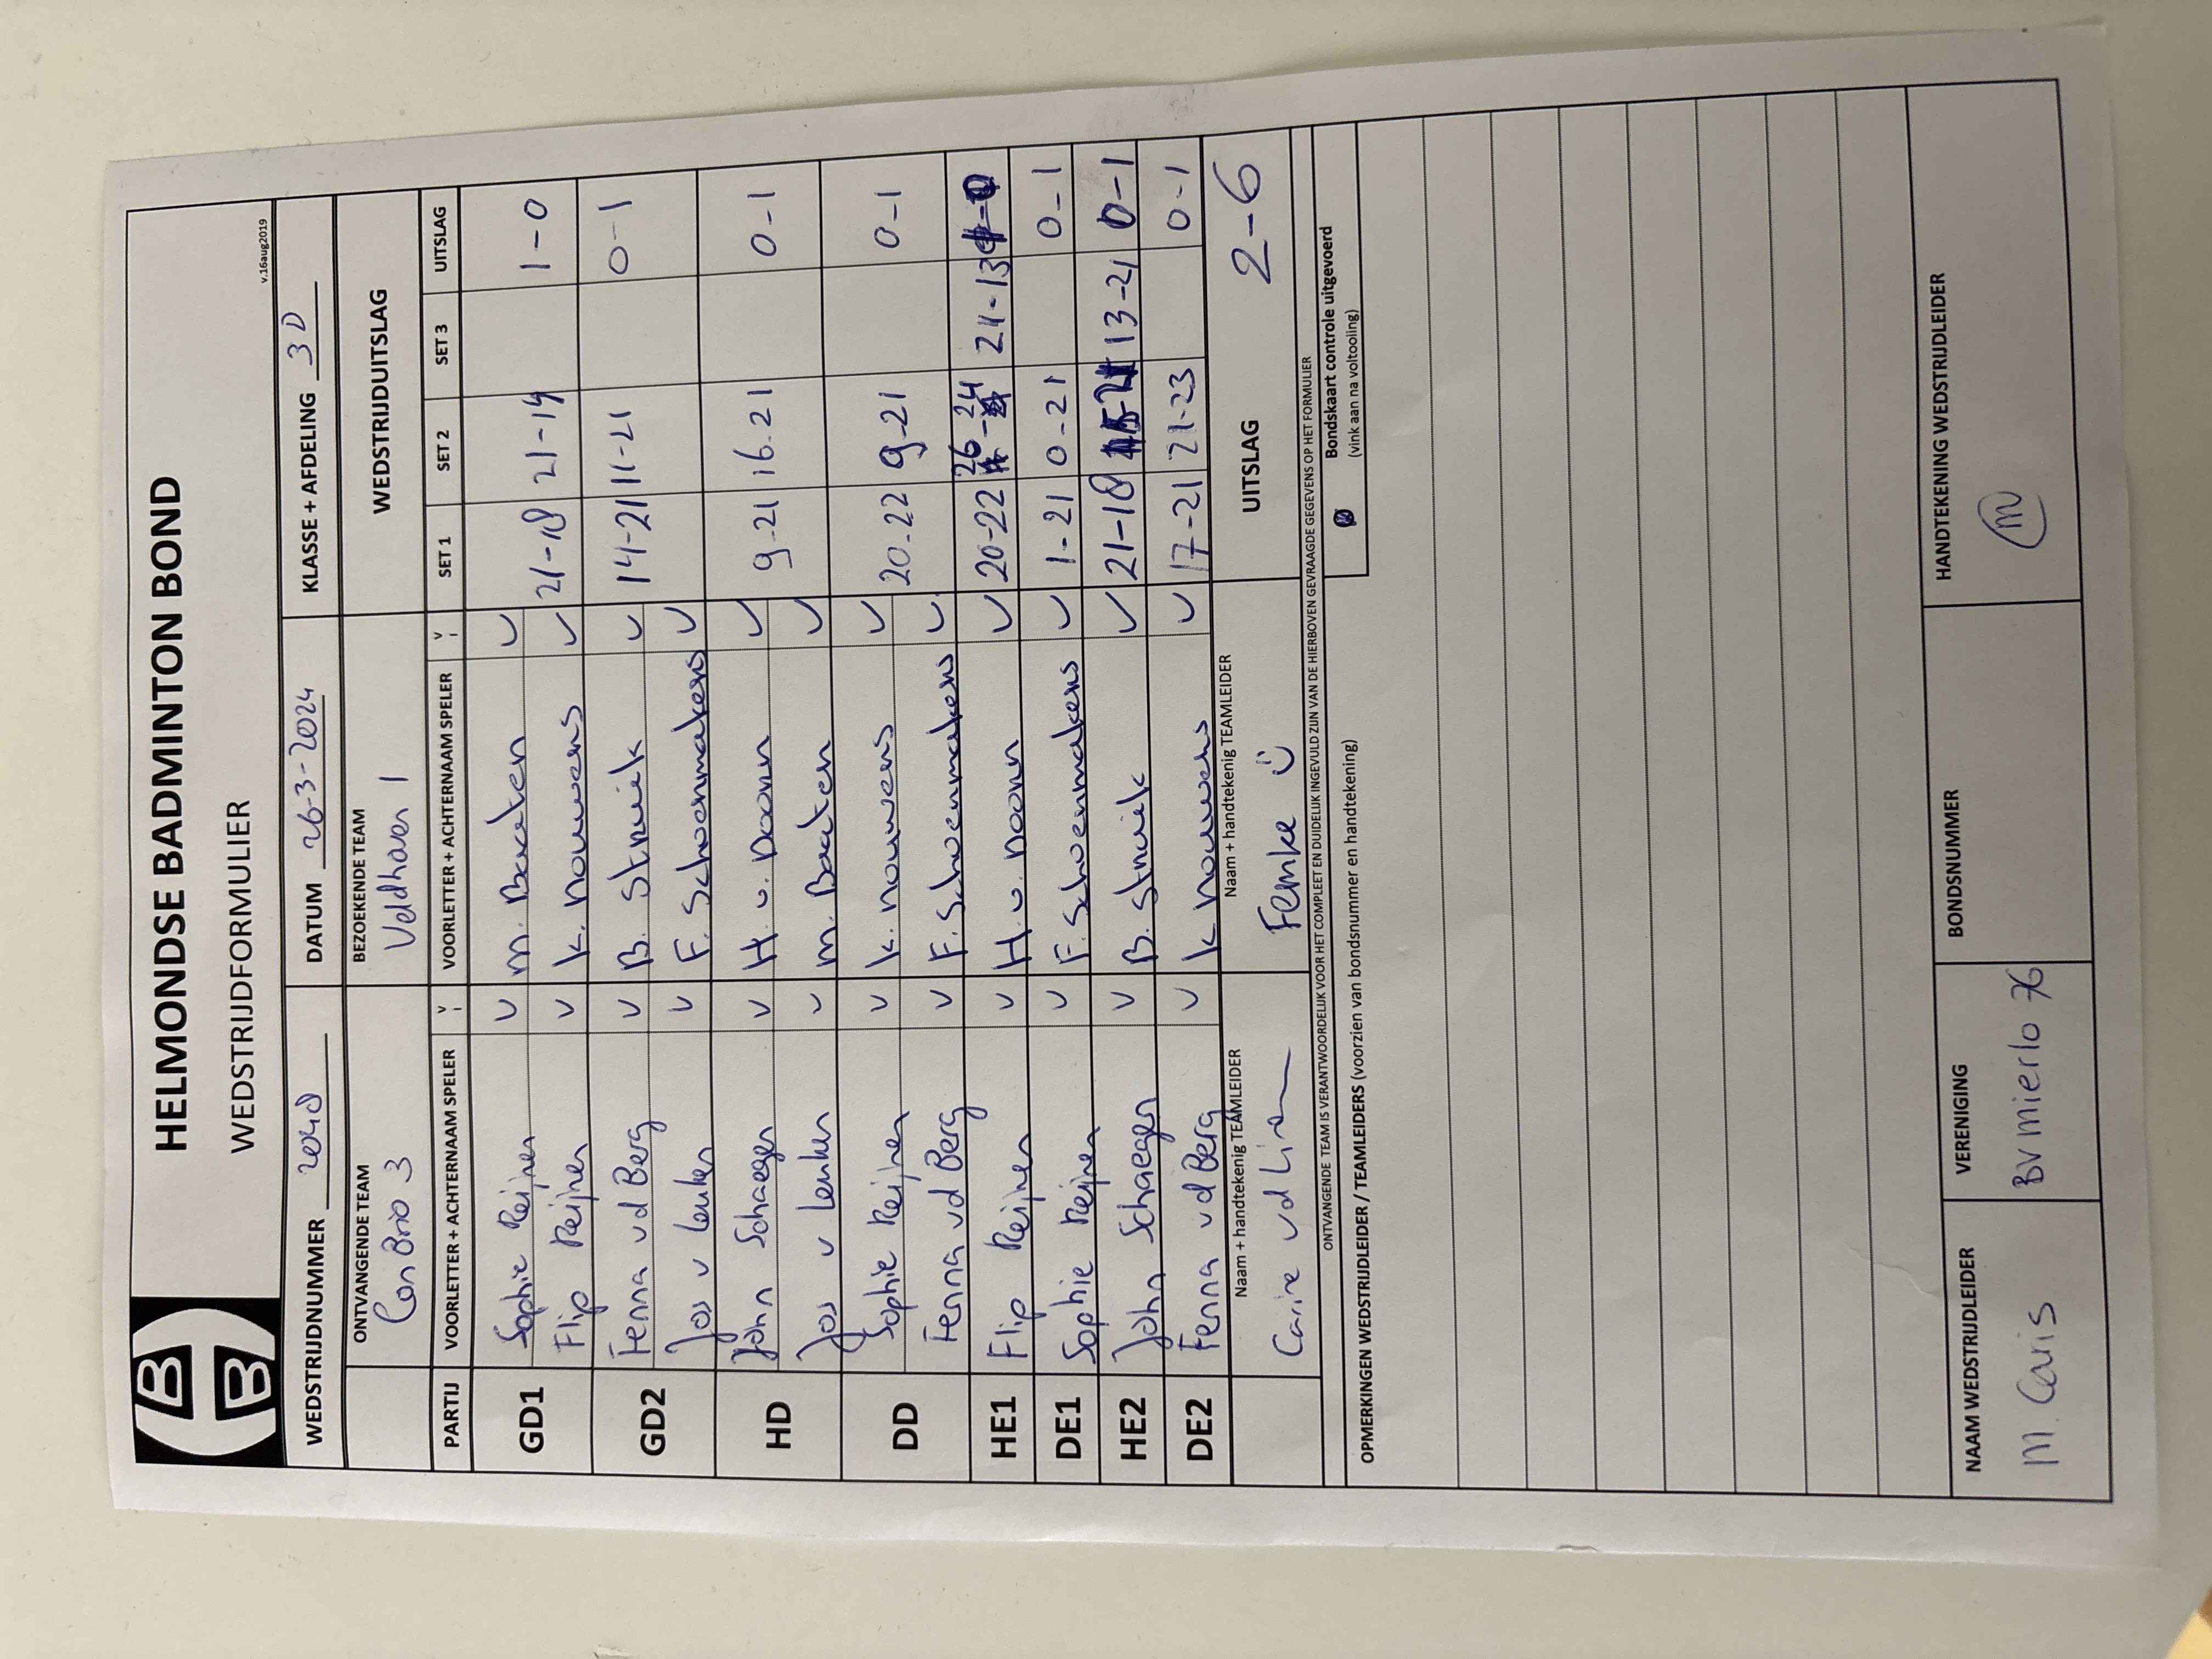 HELMONDSE BADMINTON BOND
WEDSTRIJDFORMULIER
v.16aug2019
WEDSTRIJDNUMMER 2040 DATUM 26-3-2024 KLASSE + AFDELING 3D
ONTVANGENDE TEAM BEZOEKENDE TEAM WEDSTRIJDUITSLAG
Con Brio 3 Veldhoven 1
PARTIJ VOORLETTER + ACHTERNAAM SPELER V VOORLETTER + ACHTERNAAM SPELER V SET 1 SET 2 SET 3 UITSLAG
Sophie Reijnen v M. Baaten v
GD1 21-18 21-14 1-0
Flip Reijnen v K. Nouwens v
Fenna vd Berg v B. Struik v
GD2 14-21 11-21 0-1
Jos v Leuken v F. Schoenmakers v
John Schaegen v H. v. Doorn v
HD 9-21 16.21 0-1
Jos v Leuken v M. Baaten v
Sophie Reijnen v K. Nouwens v
DD 20-22 9-21 0-1
Fenna vd Berg v F. Schoenmakers v
HE1 Flip Reijnen v H. v. Doorn v 20-22 26-24 24-13
DE1 Sophie Reijnen v F. Schoenmakers v 1-21 0-21 0-1
HE2 John Schaegen v B. Struik v 21-18 13-21 0-1
DE2 Fenna vd Berg v K. Nouwens v 17-21 21-23 0-1
Naam + handtekenig TEAMLEIDER Naam + handtekenig TEAMLEIDER
Carine vd Femke UITSLAG 2-6
ONTVANGENDE TEAM IS VERANTWOORDELIJK VOOR HET COMPLEET EN DUIDELIJK INGEVULD ZIJN VAN DE HIERBOVEN GEVRAAGDE GEGEVENS OP HET FORMULIER
OPMERKINGEN WEDSTRIJDLEIDER / TEAMLEIDERS (voorzien van bondsnummer en handtekening)
Bondskaart controle uitgevoerd
(vink aan na voltooling)
NAAM WEDSTRIJDLEIDER VERENIGING BONDSNUMMER HANDTEKENING WEDSTRIJDLEIDER
M. Caris BV mierlo 76 m